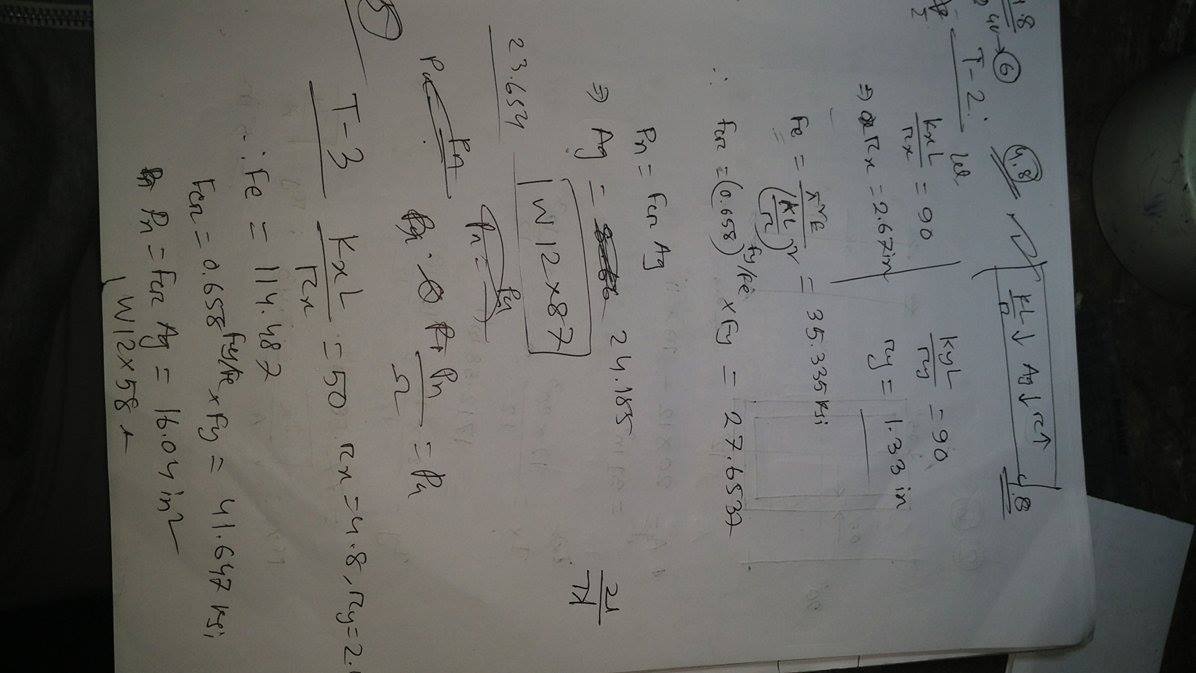 4.8
6
T-2.
4.8
KL/r ↓ Ag ↓ r ↑
4.8
let
KxL/rx = 90
KyL/ry = 90
⇒ rx = 2.67in
ry = 1.33 in
Fe = π²E/(KL/r)² = 35.335 ksi
∴ Fcr = (0.658)^Fy/Fe × Fy = 27.6537
Pn = Fcr Ag
⇒ Ag = 24.185
KL/r
23.654
W12×87
Pn
Pn =
Pn/Ω = Pa
T-3
KxL/rx = 50 rx = 4.8, ry = 2.
∴ Fe = 114.487
Fcr = 0.658^Fy/Fe × Fy = 41.647 ksi
Pn = Fcr Ag = 16.04 in²
W12×58